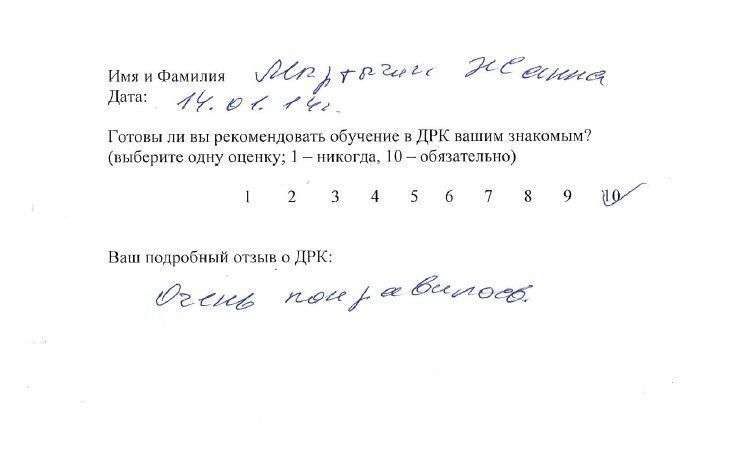 Имя и Фамилия Мартычин Жанна
Дата: 14.01.14г.
Готовы ли вы рекомендовать обучение в ДРК вашим знакомым?
(выберите одну оценку; 1 – никогда, 10 – обязательно)
1 2 3 4 5 6 7 8 9 10
Ваш подробный отзыв о ДРК:
Очень понравилось.